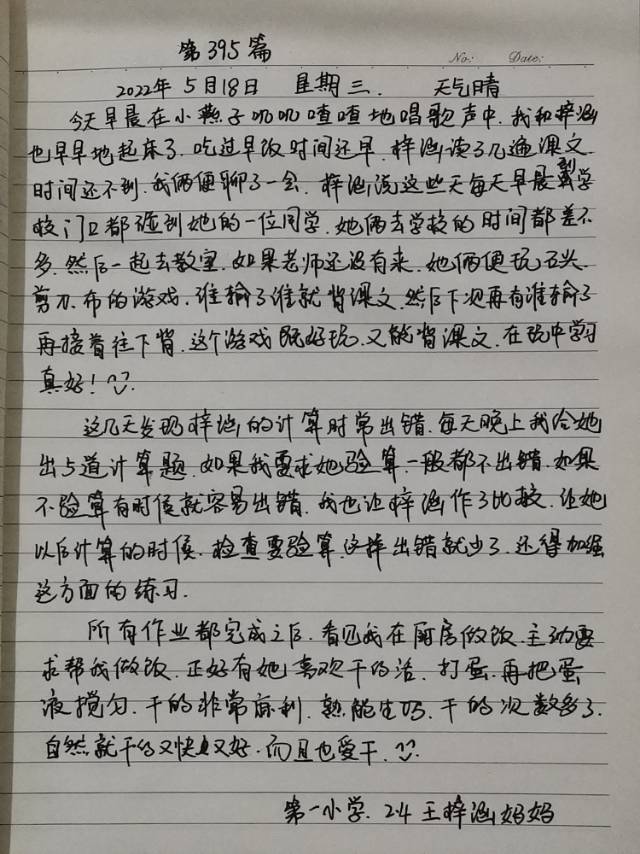 第395篇
No: Date:
2022年5月18日 星期三. 天气晴
今天早晨在小燕子叽叽喳喳地唱歌声中.我和梓涵
也早早地起床了.吃过早饭时间还早.梓涵读了几遍课文.
时间还不到.我俩便聊了一会.梓涵说这些天每天早晨到学
校门口都碰到她的一位同学.她俩去学校的时间都差不
多.然后一起去教室.如果老师还没有来.她俩便玩石头.
剪刀.布的游戏.谁输了谁就背课文.然后下次再有谁输了
再接着往下背.这个游戏既好玩.又能背课文.在玩中学习
真好!
这几天发现梓涵的计算时常出错.每天晚上我给她
出5道计算题.如果我要求她验算.一般都不出错.如果
不验算有时候就容易出错.我也让梓涵作了比较.让她
以后计算的时候.检查要验算.这样出错就少了.还得加强
这方面的练习.
所有作业都完成之后.看见我在厨房做饭.主动要
求帮我做饭.正好有她喜欢干的活.打蛋.再把蛋
液搅匀.干的非常麻利.熟能生巧.干的次数多了.
自然就干的又快又好.而且也爱干.
第一小学.24王梓涵妈妈